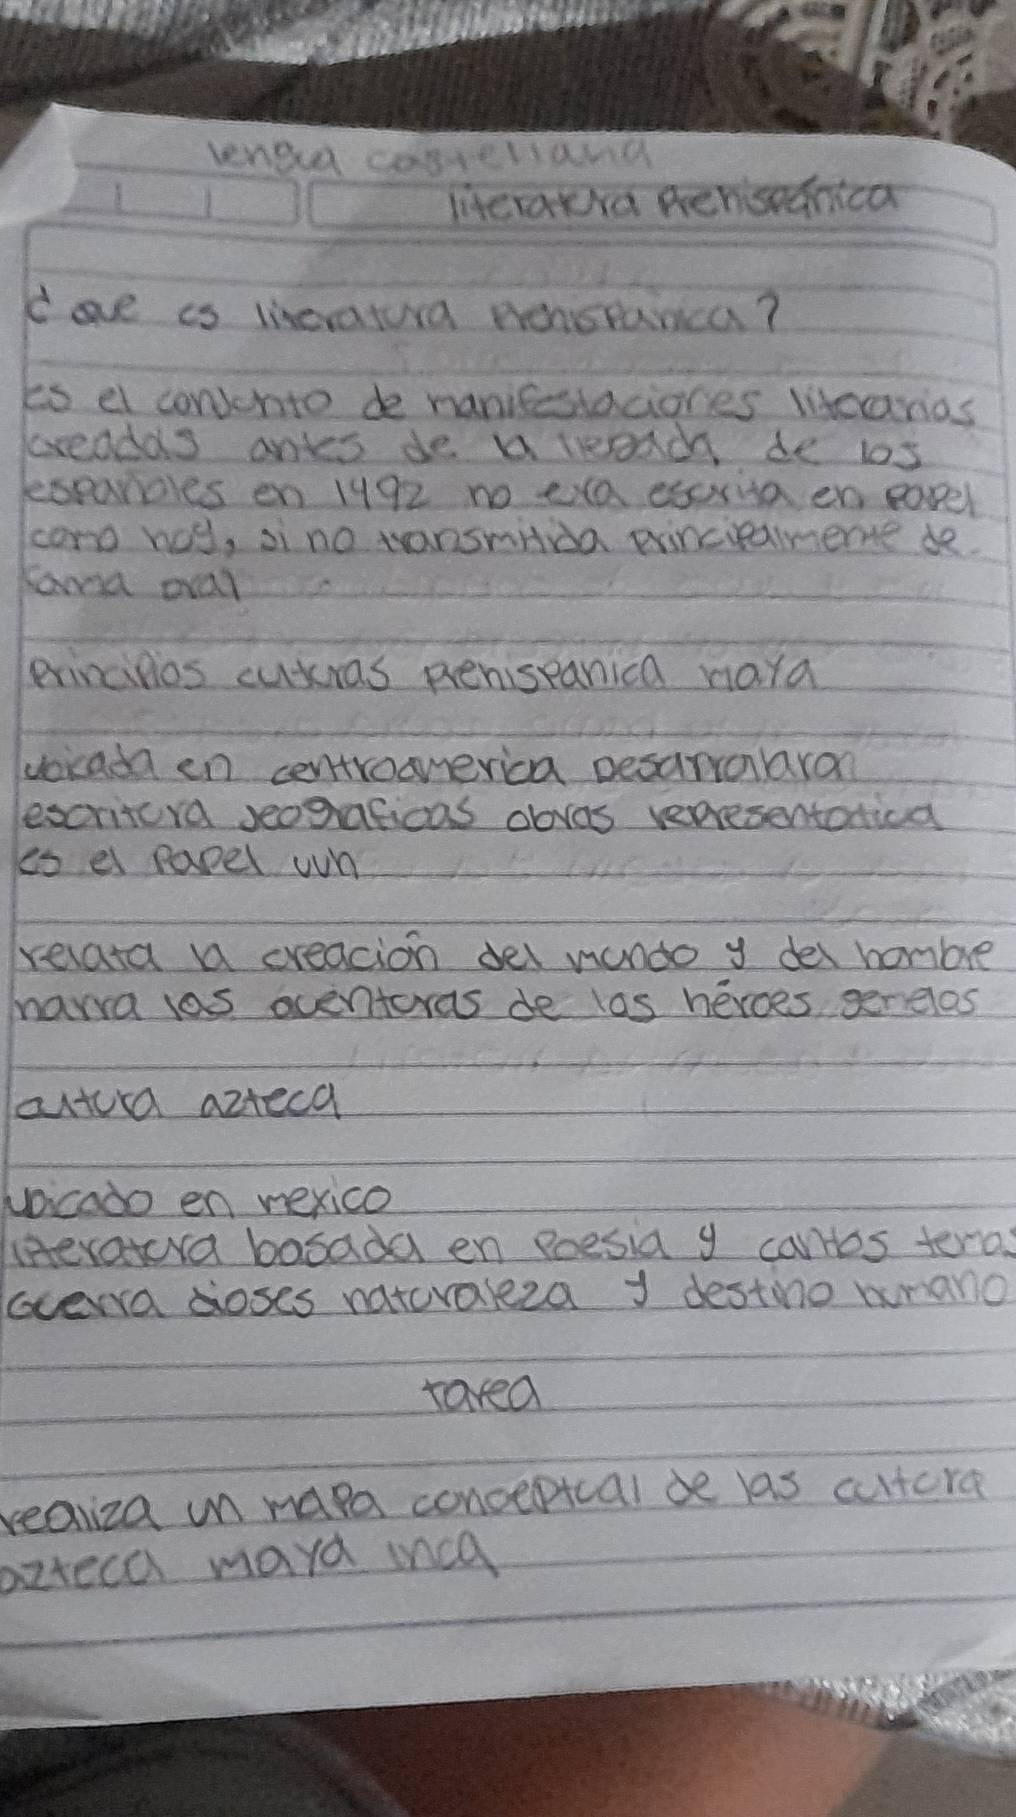 lengua castellana
literatura Prehispánica
¿ que es literatura prehispanica?
es el conjunto de manifestaciones literarias
creadas antes de la llegada de los
españoles en 1492 no era escrita en papel
como hoy, si no transmitida principalmente de
forma oral
principios culturas prehispanica maya
ubicada en centroamerica Desarrollaron
escritura jeograficas obras representatica
es el Papel vuh
relata la creación del mundo y del hombre
narra las aventuras de los héroes gemelos
cultura azteca
ubicado en mexico
literatura basada en poesia y cantos temas
Guerra dioses naturaleza y destino humano
tarea
realiza un mapa conceptual de las cultura
azteca maya inca